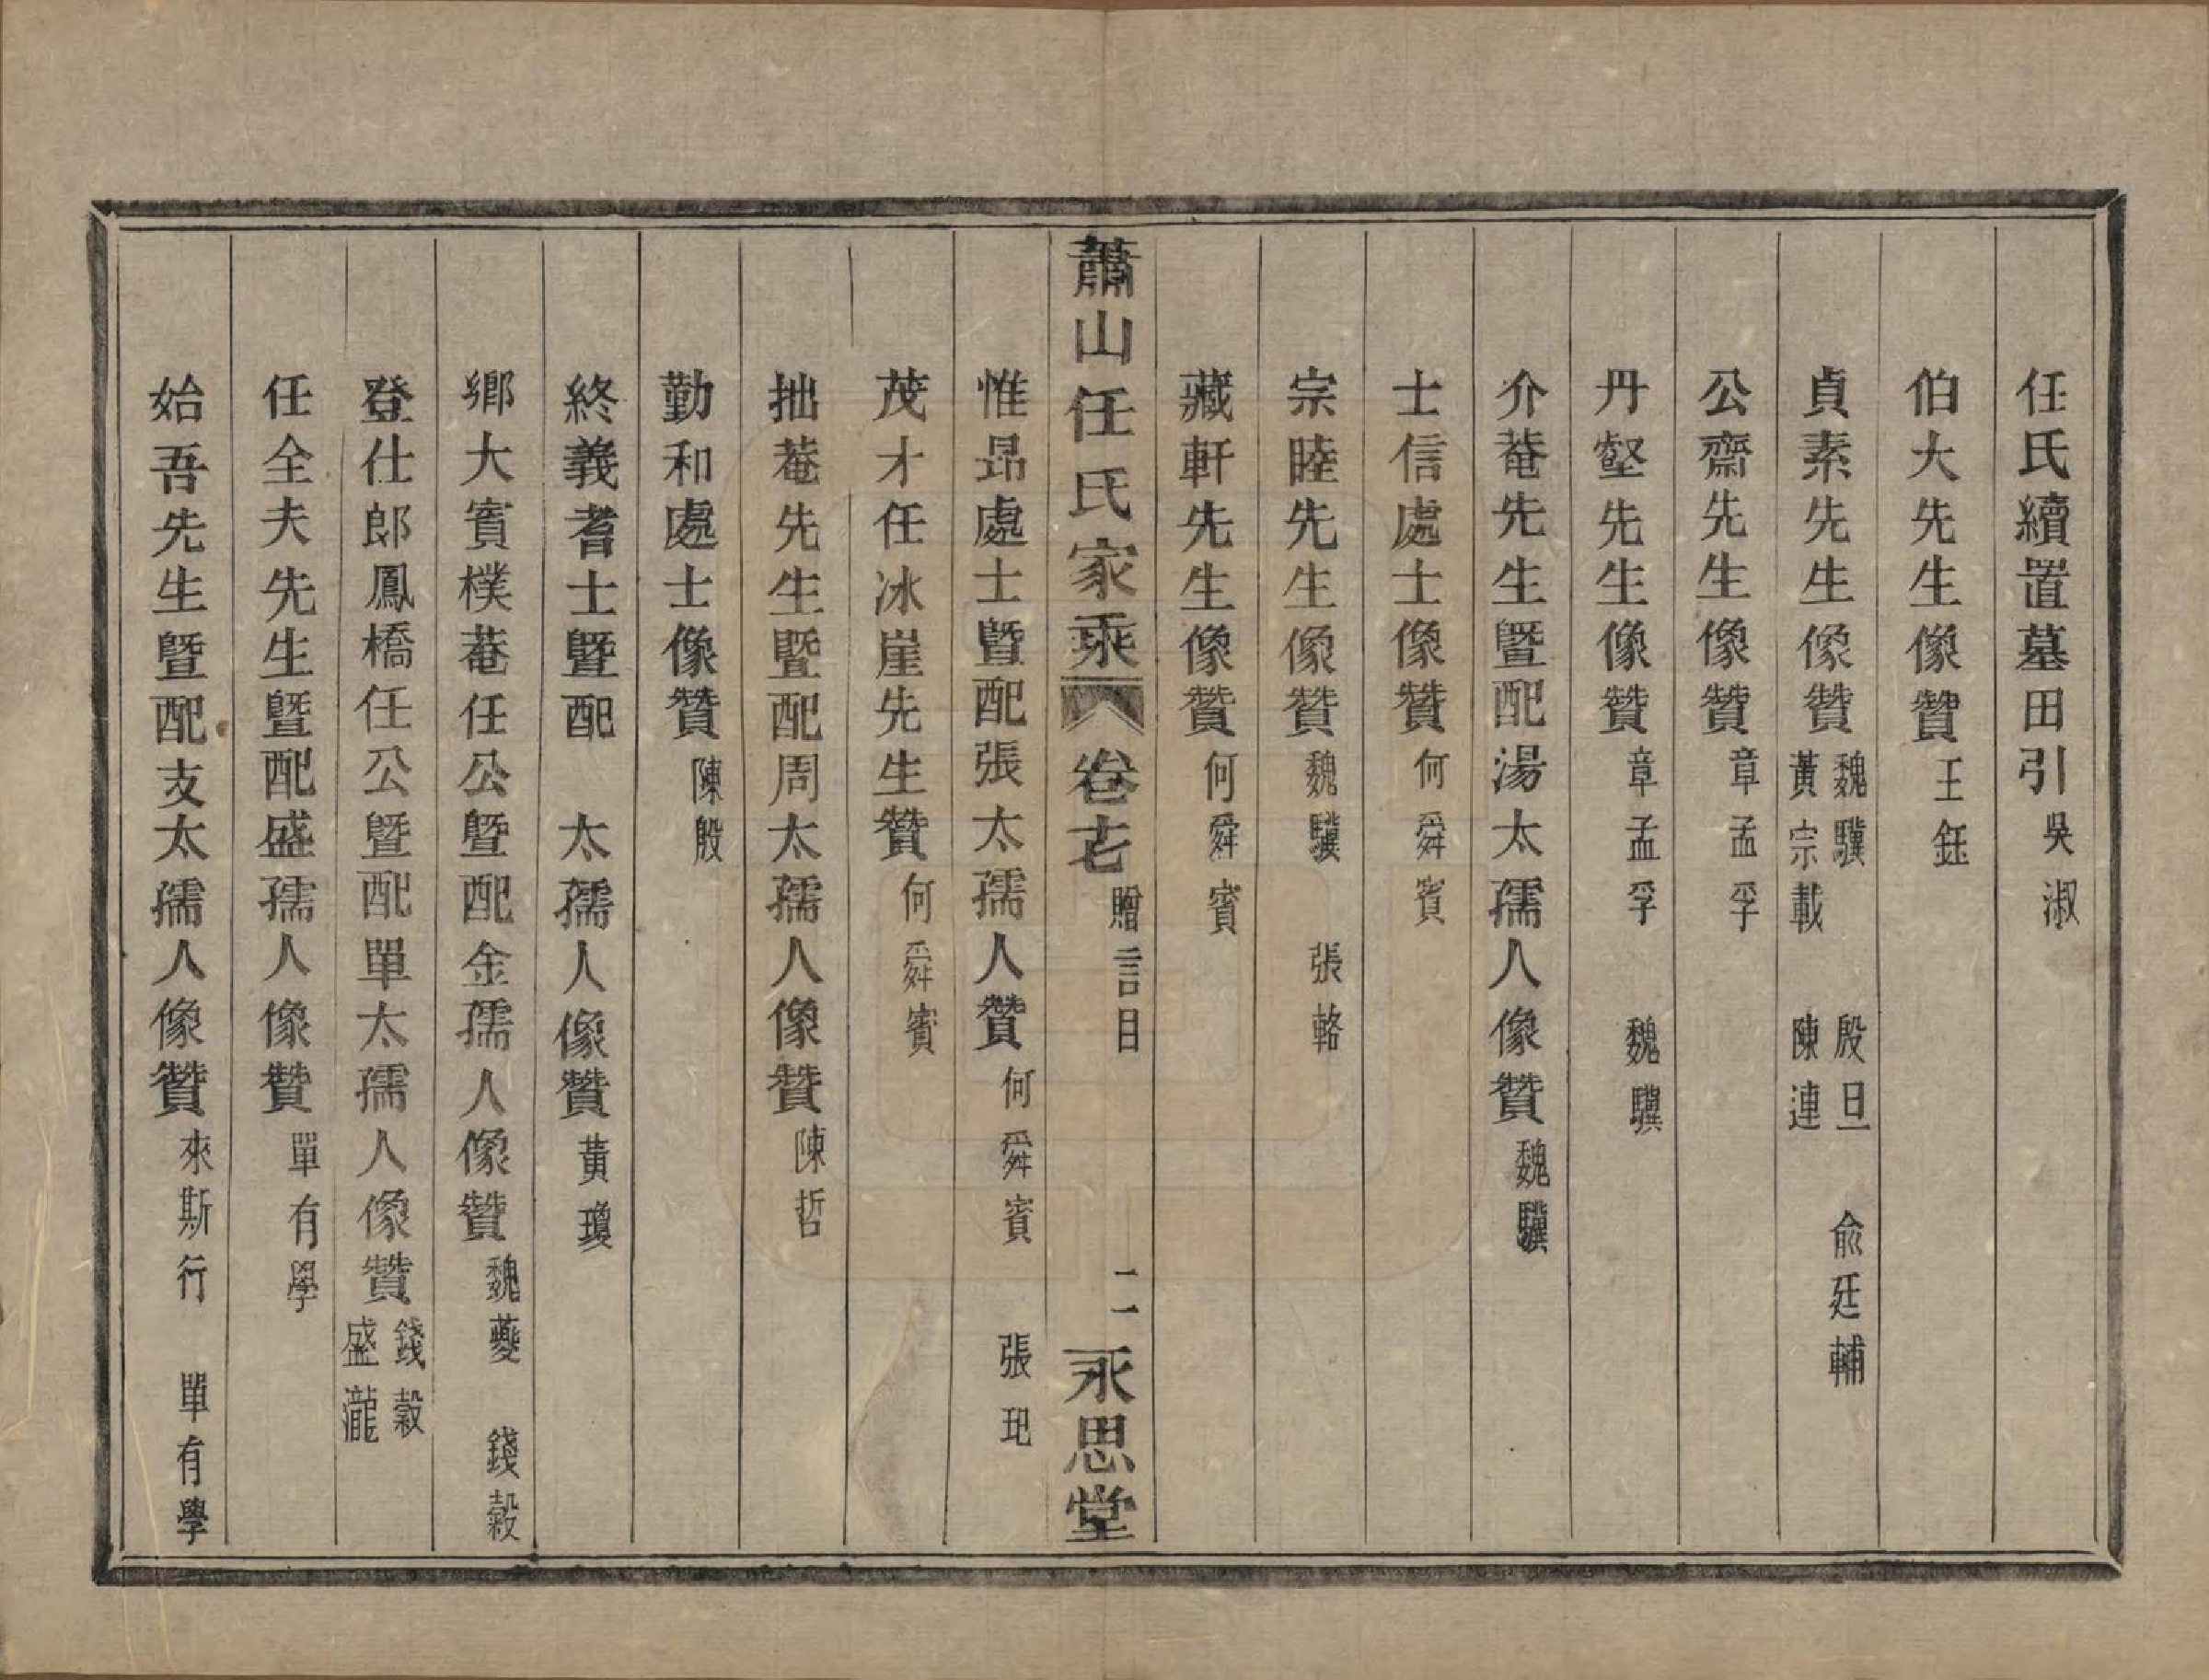 任氏續置墓田引 吳淑
伯大先生像贊 王鈺
貞素先生像贊 魏驥 殷旦 俞廷輔 黃宗載 陳連
公齋先生像贊 章孟孚
丹壑先生像贊 章孟孚 魏驥
介菴先生暨配湯太孺人像贊 魏驥
士信處士像贊 何舜賓
宗睦先生像贊 魏驥 張輅
藏軒先生像贊 何舜賓
蕭山任氏家乘 卷十七 贈言目 二 永思堂
惟昂處士暨配張太孺人贊 何舜賓 張玘
茂才任冰崖先生贊 何舜賓
拙菴先生暨配周太孺人像贊 陳哲
勤和處士像贊 陳殷
終義耆士暨配 太孺人像贊 黃瓊
鄉大賓樸菴任公暨配金孺人像贊 魏夔 錢穀
登仕郎鳳橋任公暨配單太孺人像贊 錢穀 盛瀧
任全夫先生暨配盛孺人像贊 單有學
始吾先生暨配支太孺人像贊 來斯行 單有學